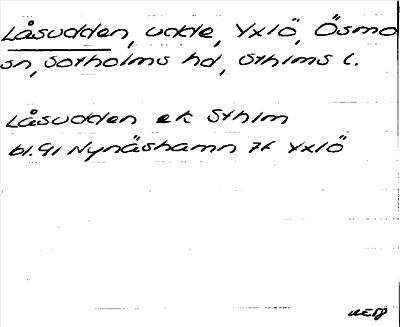 Låsudden, udde, Yxlö, Ösmo
sn, Sotholms hd, Sthlms l.
Låsudden ek Sthlm
bl. 91 Nynäshamn 7k Yxlö